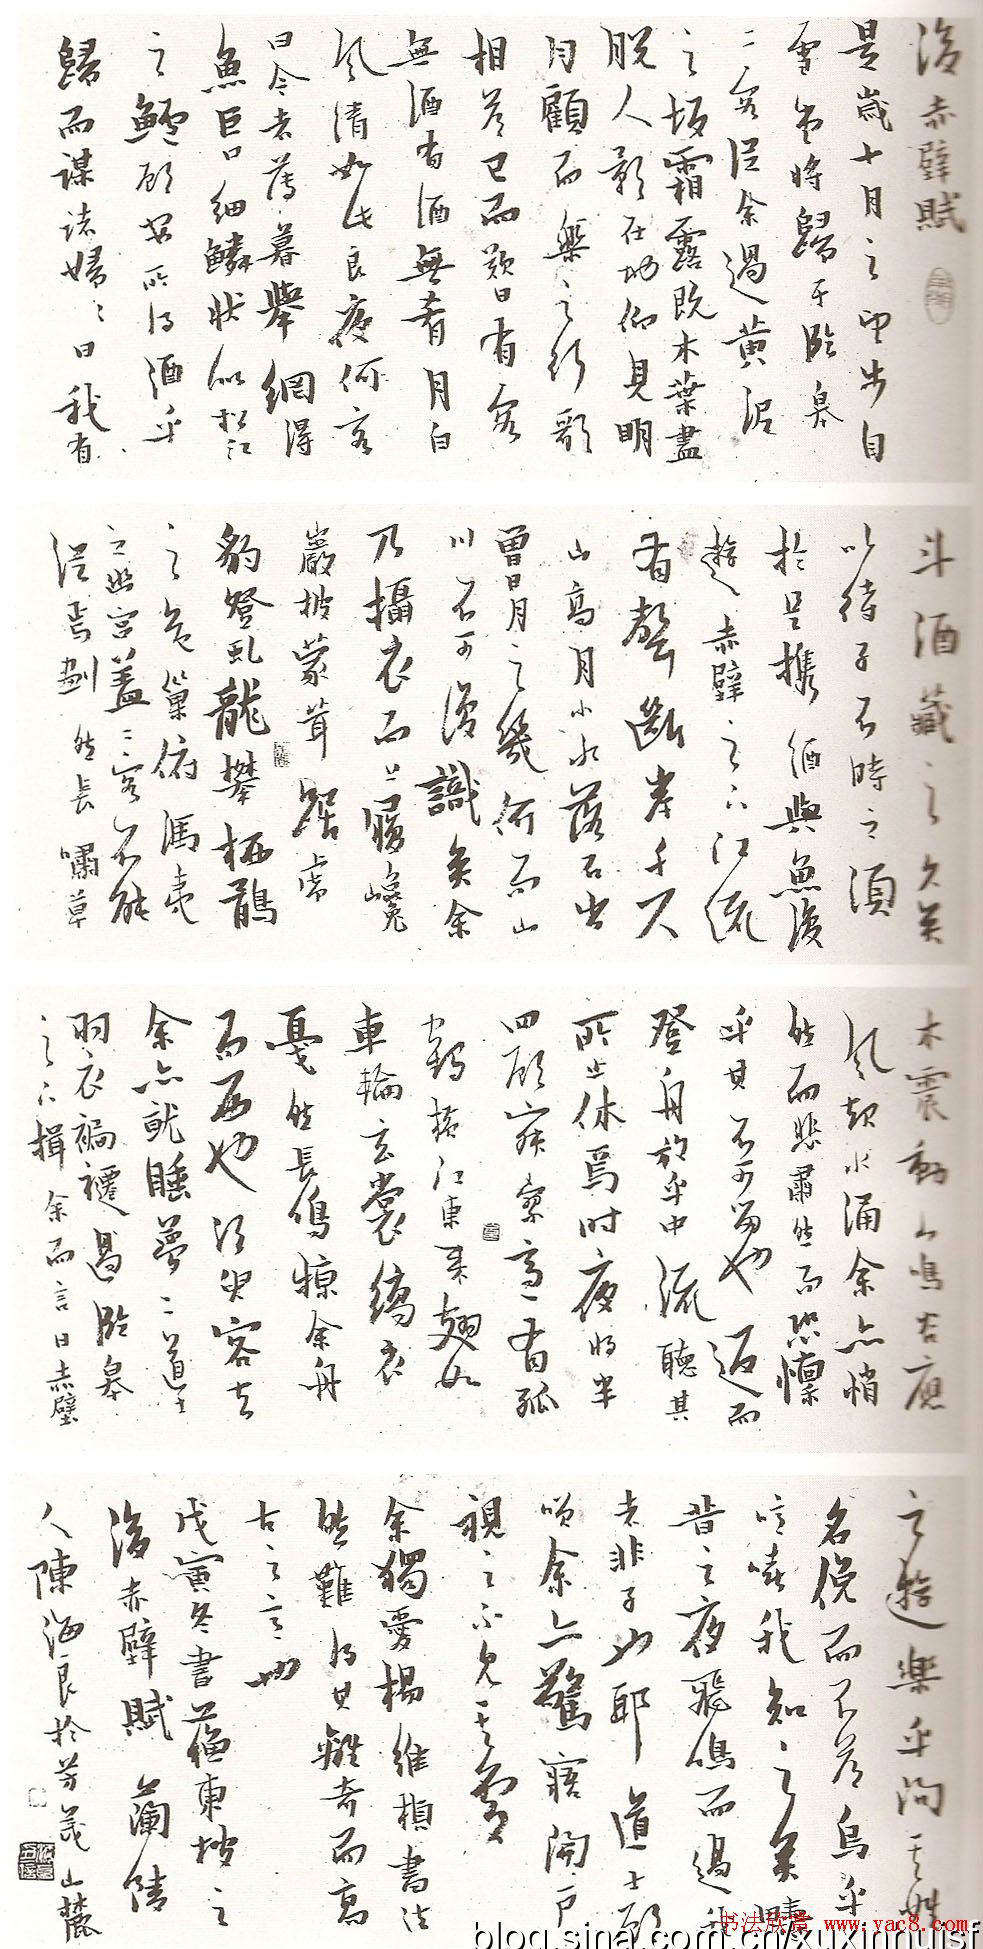 後赤壁賦
是歲十月之望步自
雪堂將歸于臨皋
二客從余過黃泥
之坂霜露既木葉盡
脫人影在地仰見明
月顧而樂之行歌
相答已而歎曰有客
無酒有酒無肴月白
風清如此良夜何客
曰今者薄暮舉網得
魚巨口細鱗狀似松江
之鱸顧安所得酒乎
歸而謀諸婦婦曰我有
斗酒藏之久矣
以待子不時之須
於是攜酒與魚復
遊赤壁之下江流
有聲斷岸千尺
山高月小水落石出
曾日月之幾何而山
川不可復識矣余
乃攝衣而上履巉
巖披蒙茸踞虎
豹登虬龍攀栖鶻
之危巢俯馮夷
之幽宮蓋二客不能
從焉劃然長嘯草
木震動山鳴谷應
風起水涌余亦悄
然而悲肅然而恐凜
乎其不可留也返而
登舟放乎中流聽其
所止休焉時夜將半
四顧寂寥適有孤
鶴橫江東來翅如
車輪玄裳縞衣
戛然長鳴掠余舟
而西也須臾客去
余亦就睡夢二道士
羽衣褊褼過臨皋
之下揖余而言曰赤壁
之遊樂乎問其姓
名俛而不答嗚乎
噫嘻我知之矣疇
昔之夜飛鳴而過我
者非子也耶道士顧
笑余亦驚寤開戶
視之不見其處
余獨愛楊維楨書法
然難得其離奇而高
古之意也
戊寅冬書蘇東坡之
後赤壁賦 蘭陵
人陳海良於芳茂山麓
书法欣赏 www.yac8.com
blog.sina.com.cn/xuxinhuisf